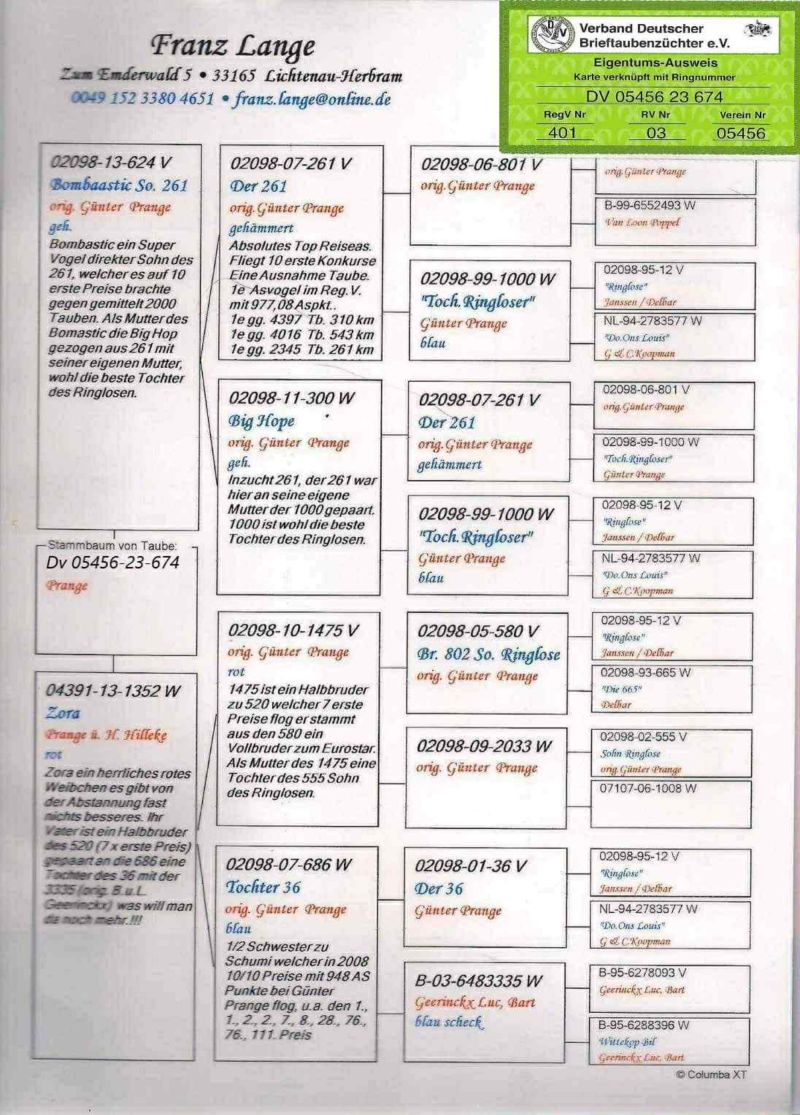 Franz Lange
Zum Emderwald 5 • 33165 Lichtenau-Herbram
0049 152 3380 4651 • franz.lange@online.de
Verband Deutscher
Brieftaubenzüchter e.V.
Eigentums-Ausweis
Karte verknüpft mit Ringnummer
DV 05456 23 674
RegV Nr RV Nr Verein Nr
401 03 05456
02098-13-624 V
Bombaastic So. 261
orig. Günter Prange
geh.
Bombastic ein Super
Vogel direkter Sohn des
261, welcher es auf 10
erste Preise brachte
gegen gemittelt 2000
Tauben. Als Mutter des
Bomastic die Big Hop
gezogen aus 261 mit
seiner eigenen Mutter,
wohl die beste Tochter
des Ringlosen.
Stammbaum von Taube:
Dv 05456-23-674
Prange
04391-13-1352 W
Zora
Prange ü. H. Hilleke
rot
Zora ein herrliches rotes
Weibchen es gibt von
der Abstannung fast
nichts besseres. Ihr
Vater ist ein Halbbruder
des 520 (7 x erste Preis)
gepaart an die 686 eine
Tochter des 36 mit der
3335 (orig. B.u.L.
Geerinckx) was will man
da noch mehr.!!!
02098-07-261 V
Der 261
orig. Günter Prange
gehämmert
Absolutes Top Reiseas.
Fliegt 10 erste Konkurse
Eine Ausnahme Taube.
1e Asvogel im Reg. V.
mit 977,08 Aspkt..
1e gg. 4397 Tb. 310 km
1e gg. 4016 Tb. 543 km
1e gg. 2345 Tb. 261 km
02098-11-300 W
Big Hope
orig. Günter Prange
geh.
Inzucht 261, der 261 war
hier an seine eigene
Mutter der 1000 gepaart.
1000 ist wohl die beste
Tochter des Ringlosen.
02098-10-1475 V
orig. Günter Prange
rot
1475 ist ein Halbbruder
zu 520 welcher 7 erste
Preise flog er stammt
aus den 580 ein
Vollbruder zum Eurostar.
Als Mutter des 1475 eine
Tochter des 555 Sohn
des Ringlosen.
02098-07-686 W
Tochter 36
orig. Günter Prange
blau
1/2 Schwester zu
Schumi welcher in 2008
10/10 Preise mit 948 AS
Punkte bei Günter
Prange flog, u.a. den 1.,
1., 2., 2., 7., 8., 28., 76.,
76., 111. Preis
02098-06-801 V
orig. Günter Prange
02098-99-1000 W
"Toch. Ringloser"
Günter Prange
blau
02098-07-261 V
Der 261
orig. Günter Prange
gehämmert
02098-99-1000 W
"Toch. Ringloser"
Günter Prange
blau
02098-05-580 V
Br. 802 So. Ringlose
orig. Günter Prange
02098-09-2033 W
orig. Günter Prange
02098-01-36 V
Der 36
Günter Prange
B-03-6483335 W
Geerinckx Luc, Bart
blau scheck
orig. Günter Prange
B-99-6552493 W
Van Loon Poppel
02098-95-12 V
"Ringlose"
Janssen / Delbar
NL-94-2783577 W
"Do. Ons Louis"
G & C. Koopman
02098-06-801 V
orig. Günter Prange
02098-99-1000 W
"Toch. Ringloser"
Günter Prange
02098-95-12 V
"Ringlose"
Janssen / Delbar
NL-94-2783577 W
"Do. Ons Louis"
G & C. Koopman
02098-95-12 V
"Ringlose"
Janssen / Delbar
02098-93-665 W
"Die 665"
Delbar
02098-02-555 V
Sohn Ringlose
orig. Günter Prange
07107-06-1008 W
02098-95-12 V
"Ringlose"
Janssen / Delbar
NL-94-2783577 W
"Do. Ons Louis"
G & C. Koopman
B-95-6278093 V
Geerinckx Luc, Bart
B-95-6288396 W
Wittekop Bil
Geerinckx Luc, Bart
© Columba XT